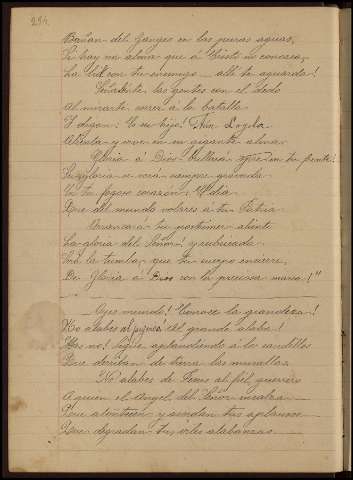 294.
Bañan del Ganges en las puras aguas,
Si hay un alma que á Cristo no conozca,
La lid con tu enemigo allí te aguarda!
Señalente las gentes con el dedo
Al mirarte correr á la batalla
Y digan: Es su hijo! Aun Loyola
Alienta y vive en su gigante alma.
Gloria á Dios brillará en tu frente!
Su gloria se verá siempre grabada
En tu fogoso corazon: el dia
Que del mundo volares á tu Patria
Arrancará tu postrimer aliento
La gloria del Señor! y rubricada
Será la tumba que tu cuerpo encierre,
De Gloria á Dios con la preciosa marca!"
Oyes mundo! Conoce la grandeza!
No alabes al pequeño! Al grande alaba!
Mas no! Sigue aplaudiendo á los caudillos
Que derriban de tierra las murallas.
No alabes de Jesus al fiel guerrero
A quien el Angel del Señor ensalza
Que le ofenden y sus aplausos
Que degradan tus viles alabanzas.